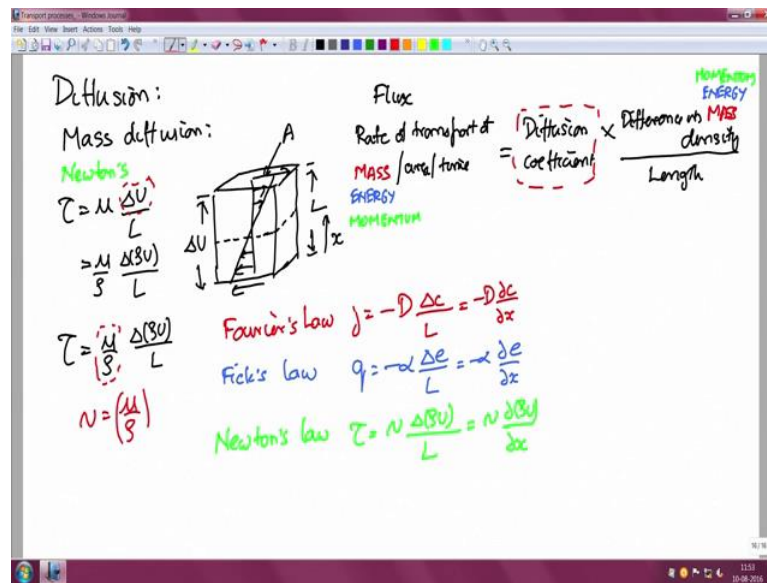 Transport processes_ - Windows Journal
File Edit View Insert Actions Tools Help
Diffusion:
Mass diffusion:
Newton's
τ = μ ΔU / L
= μ/ρ Δ(ρU) / L
τ = μ/ρ Δ(ρU) / L
ν = (μ/ρ)
A
ΔU
L
x
Flux
Rate of transport of
MASS /area/time
ENERGY
MOMENTUM
= Diffusion coefficient × Difference in density / Length
MOMENTUM
ENERGY
MASS
Fourier's Law j = -D Δc / L = -D ∂c / ∂x
Fick's law q = -α Δe / L = -α ∂e / ∂x
Newton's law τ = ν Δ(ρU) / L = ν ∂(ρU) / ∂x
16/16
11:53
10-08-2016